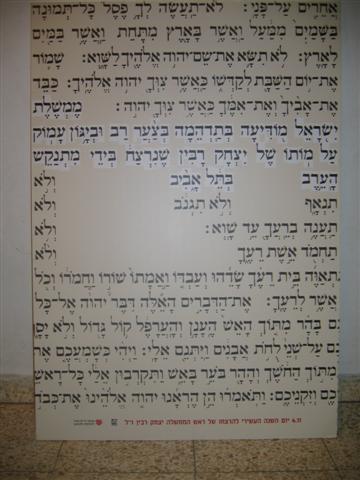 אֲחֵרִים עַל-פָּנָי: לֹא-תַעֲשֶׂה לְךָ פֶסֶל כָּל-תְּמוּנָה
בַּשָּׁמַיִם מִמַּעַל וַאֲשֶׁר בָּאָרֶץ מִתָּחַת וַאֲשֶׁר בַּמַּיִם
לָאָרֶץ: לֹא תִשָּׂא אֶת-שֵׁם-יְהוָה אֱלֹהֶיךָ לַשָּׁוְא: שָׁמוֹר
אֶת-יוֹם הַשַּׁבָּת לְקַדְּשׁוֹ כַּאֲשֶׁר צִוְּךָ יְהוָה אֱלֹהֶיךָ: כַּבֵּד
אֶת-אָבִיךָ וְאֶת-אִמֶּךָ כַּאֲשֶׁר צִוְּךָ יְהוָה: מֶמְשֶׁלֶת
יִשְׂרָאֵל מוֹדִיעָה בְּתַדְהֵמָה בְּצַעַר רַב וּבְיָגוֹן עָמוֹק
עַל מוֹתוֹ שֶׁל יִצְחָק רַבִּין שֶׁנִּרְצַח בִּידֵי מִתְנַקֵּשׁ
הָעֶרֶב בְּתֵל אָבִיב וְלֹא
תִנְאָף וְלֹא תִגְנֹב וְלֹא
תַעֲנֶה בְרֵעֲךָ עֵד שָׁוְא: וְלֹא
תַחְמֹד אֵשֶׁת רֵעֶךָ וְלֹא
תִתְאַוֶּה בֵּית רֵעֶךָ שָׂדֵהוּ וְעַבְדּוֹ וַאֲמָתוֹ שׁוֹרוֹ וַחֲמֹרוֹ וְכֹל
אֲשֶׁר לְרֵעֶךָ: אֶת-הַדְּבָרִים הָאֵלֶּה דִּבֶּר יְהוָה אֶל-כָּל
בָּהָר מִתּוֹךְ הָאֵשׁ הֶעָנָן וְהָעֲרָפֶל קוֹל גָּדוֹל וְלֹא יָסָף
עַל-שְׁנֵי לֻחֹת אֲבָנִים וַיִּתְּנֵם אֵלָי: וַיְהִי כְּשָׁמְעֲכֶם אֶת
מִתּוֹךְ הַחֹשֶׁךְ וְהָהָר בֹּעֵר בָּאֵשׁ וַתִּקְרְבוּן אֵלַי כָּל-רָאשֵׁי
וְזִקְנֵיכֶם: וַתֹּאמְרוּ הֵן הֶרְאָנוּ יְהוָה אֱלֹהֵינוּ אֶת-כְּבֹדוֹ
4.11 יום השנה העשירי להרצחו של ראש הממשלה יצחק רבין ז"ל